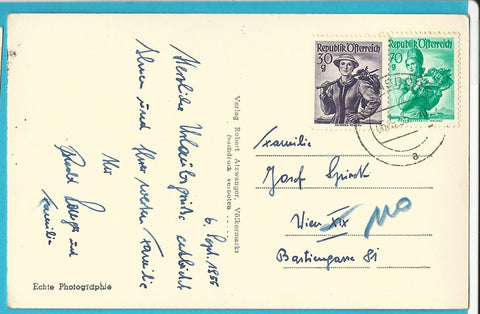 6. Sept. 1956
Herzliche Urlaubsgrüße entbietet
Ihnen und Ihrer werten Familie
Ihr
und
Familie
Echte Photographie
Verlag Robert Atzwanger, Völkermarkt
Nachdruck verboten
Republik Österreich
30
g
Republik Österreich
70
g
a
Familie
Josef
Wien XIX
110
Bastiengasse 81